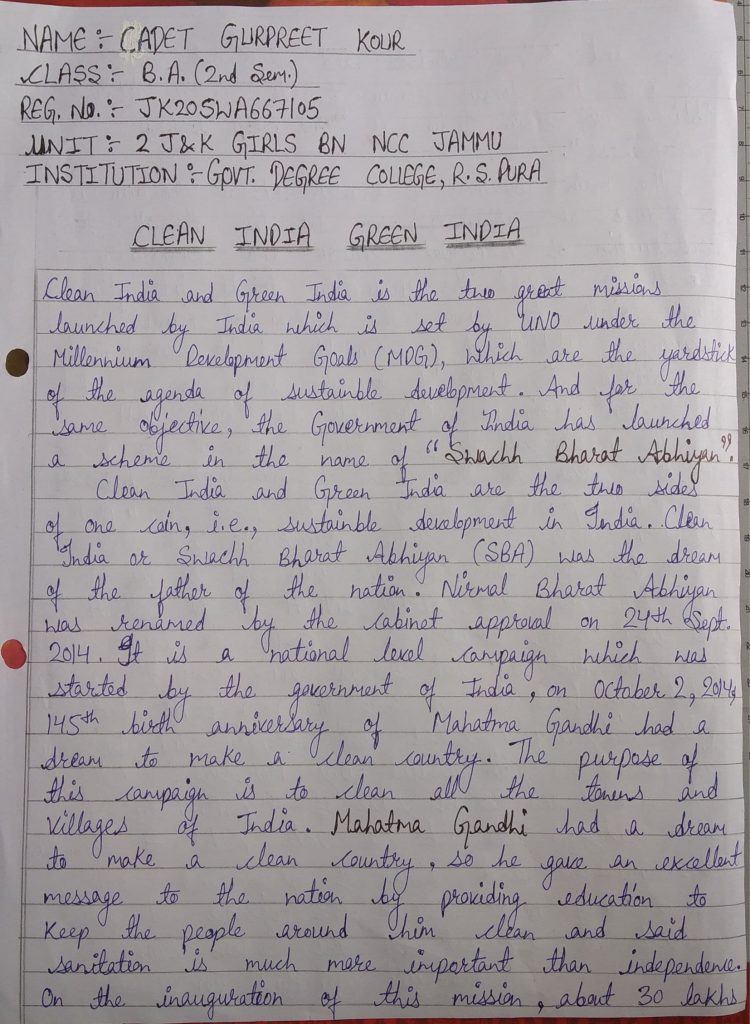 NAME :- CADET GURPREET KOUR
CLASS :- B.A. (2nd Sem.)
REG. No. :- JK20SWA667105
UNIT :- 2 J&K GIRLS BN NCC JAMMU
INSTITUTION :- GOVT. DEGREE COLLEGE, R.S. PURA
CLEAN INDIA GREEN INDIA
Clean India and Green India is the two great missions
launched by India which is set by UNO under the
Millennium Development Goals (MDG), which are the yardstick
of the agenda of sustainble development. And for the
same objective, the Government of India has launched
a scheme in the name of "Swachh Bharat Abhiyan".
Clean India and Green India are the two sides
of one coin, i.e., sustainble development in India. Clean
India or Swachh Bharat Abhiyan (SBA) was the dream
of the father of the nation. Nirmal Bharat Abhiyan
was renamed by the cabinet approval on 24th Sept.
2014. It is a national level campaign which was
started by the government of India, on October 2, 2014,
145th birth anniversary of Mahatma Gandhi had a
dream to make a clean country. The purpose of
this campaign is to clean all the towns and
villages of India. Mahatma Gandhi had a dream
to make a clean country, so he gave an excellent
message to the nation by providing education to
keep the people around him clean and said
sanitation is much more important than independence.
On the inauguration of this mission, about 30 lakhs